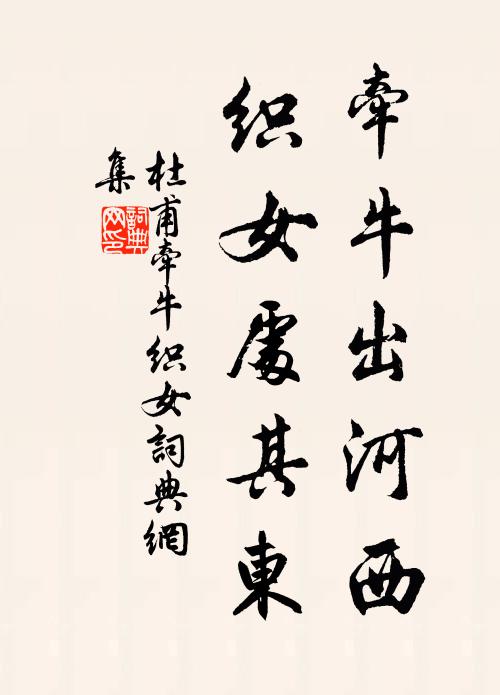 牽牛出河西
织女處其東
杜甫牽牛织女詞典網
集
詞典
网印